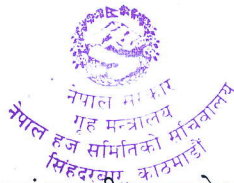 नेपाल सरकार
गृह मन्त्रालय
नेपाल हज समितिको सचिवालय
सिंहदरबार, काठमाडौं